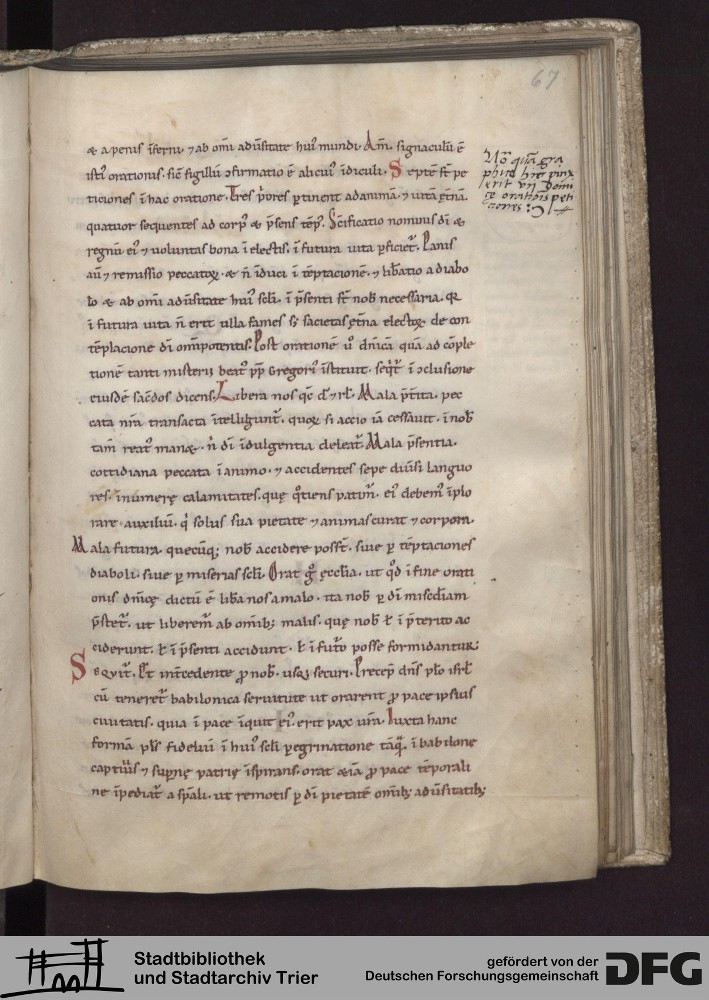 67
& a penis īferni. ⁊ ab om̄i adūsitate hui᷒ mundi. Am̄. signaculū ē
isti᷒ orationis. sic̄ sigillū ↄfirmatio ē alicui᷒ īdiculi. Septē st̄ pe
ticiones ī hac oratione. Tres p̄ores ꝑtinent ad animā. ⁊ uitā et̄nā.
quatuor sequentes ad corp᷒ & p̄sens tēp᷒. Sc̄ificatio nominis dī &
regnū ei᷒ ⁊ uoluntas bona ī electis. ī futura uita ꝑficiet᷒. Panis
aū ⁊ remissio peccatoꝝ. & n̄ īduci ī tēptacionē. ⁊ lib̄atio a diabo
lo & ab om̄i adūsitate hui᷒ sc̄li. ī p̄senti st̄ nob̄ necessaria. Qꝛ
ī futura uita n̄ erit ulla fames sꝫ societas et̄na electoꝝ de con
tēplacione dī om̄ipotentis. Post orationē u᷒ dn̄icā quā ad cōple
tionē tanti misterii beat᷒ pp̄ Gregori᷒ īstituit. seq̄t᷒ ī ↄclusione
eiusdē sac̄dos dicens. Libera nos qs̄ dn̄e ⁊ rl̄. Mala p̄t̄ita. pec
cata nr̄a transacta ītelligunt᷒. quoꝝ si accio iā cessauit. ī nob̄
tam̄ reat᷒ man&. n̄ dī īdulgentia deleat᷒. Mala p̄sentia.
cottidiana peccata ī animo. ⁊ accidentes sepe diūsi languo
res. īnumerę calamitates. quę q̄tiens patim᷒. ei᷒ debem᷒ īplo
rare auxiliū. q̄ solus sua pietate ⁊ animas curat ⁊ corpora.
Mala futura. quecūq; nob̄ accidere poss̄t. siue ꝑ tēptaciones
diaboli. siue ꝑ miserias sc̄li. Orat g̊ ęccl̄ia. ut q̊d ī fine orati
onis dn̄icę dictū ē lib̄a nos a malo. ita nob̄ ꝑ dī misc̄diam
p̄stet᷒. ut liberem᷒ ab om̄ib; malis. quę nob̄ ł ī p̄terito ac
ciderunt. ł ī p̄senti accidunt. ł ī fut᷒o posse formidantur;
Sequit᷒. Et int̄cedente ꝓ nob̄. usq; securi. Precep̄ dn̄s pl̄o isrl̄
cū teneret᷒ babilonica seruitute ut orarent ꝓ pace ipsius
ciuitatis. quia ī pace īquit ei᷒. erit pax ur̄a. Iuxta hanc
formā pl̄s fideliū ī hui᷒ sc̄li ꝑegrinatione tāq̄ ī babilone
captiu᷒s ⁊ sup̄nę patrię īspirans. orat &iā ꝓ pace tēporali
ne īpediat᷒ a sp̄ali. ut remotis ꝑ dī pietatē om̄ib; adūsitatib;
quā gra
phice hic pinx
erit vii Domi
cę orationis peti
tiones:
Stadtbibliothek
und Stadtarchiv Trier
gefördert von der
Deutschen Forschungsgemeinschaft
DFG